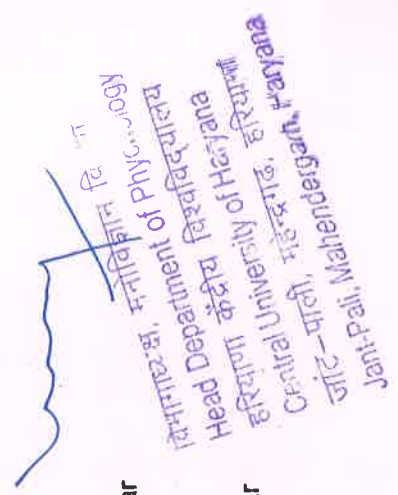 विभागाध्यक्ष, मनोविज्ञान
Head Department of
हरियाणा केंद्रीय विश्वविद्यालय
Central University of Haryana
जांट-पाली, महेन्द्रगढ़, हरियाणा
Jant-Pali, Mahendergarh, Haryana
ar
r